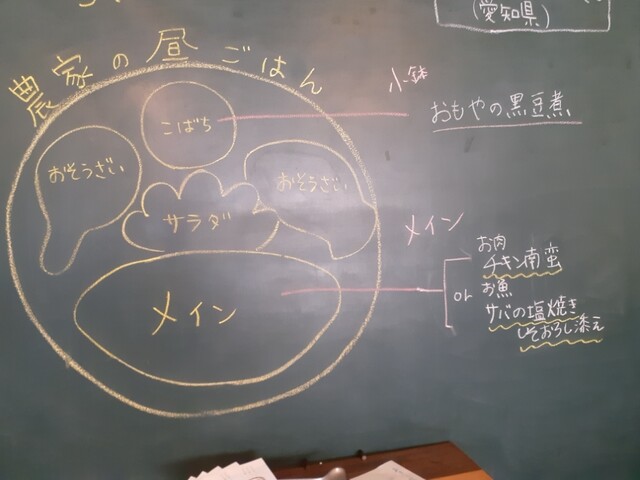 (愛知県)
農家の昼ごはん
こばち
小鉢
おもやの黒豆煮
おそうざい
おそうざい
サラダ
メイン
メイン
お肉
チキン南蛮
or
お魚
サバの塩焼き
しそおろし添え